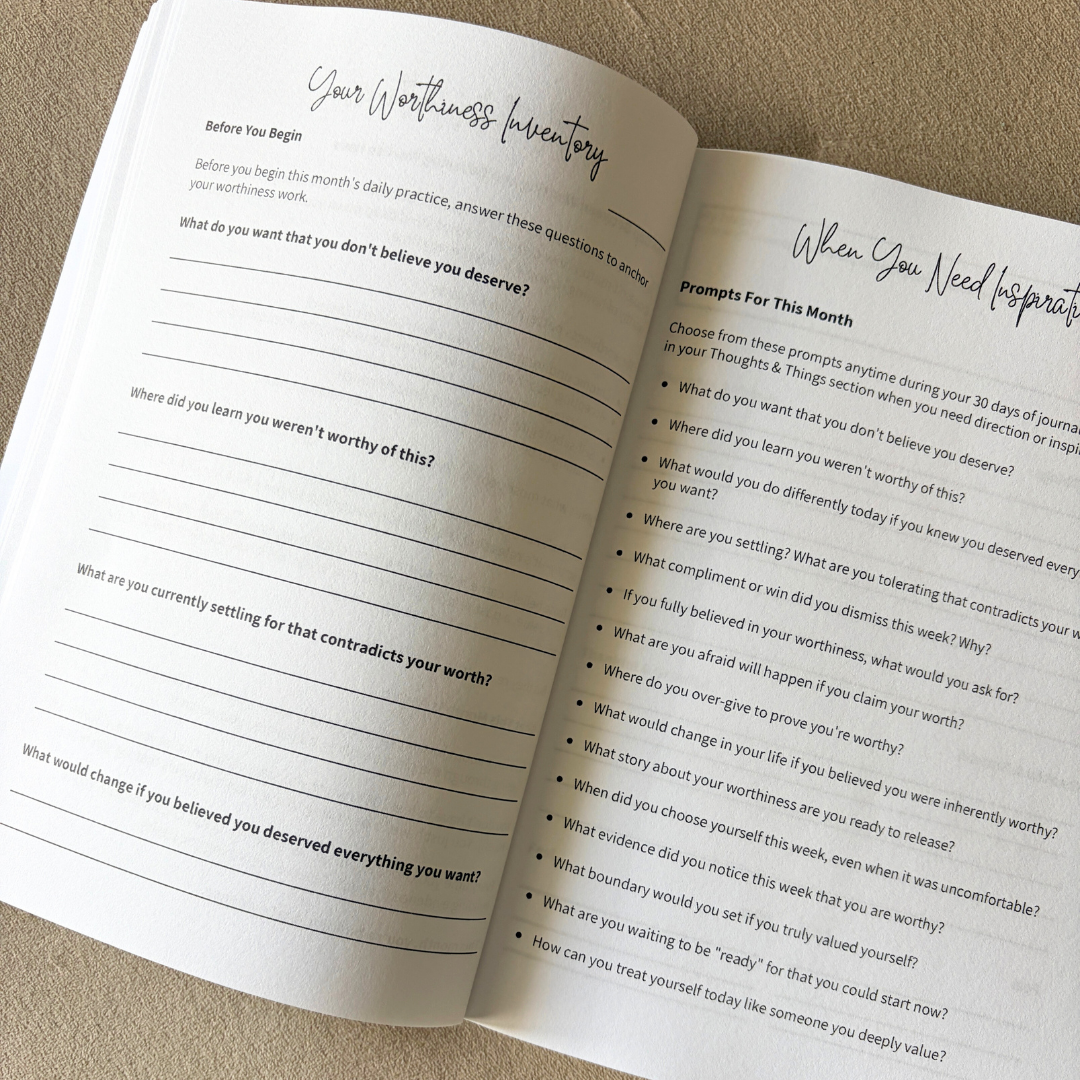 Your Worthiness Inventory
Before You Begin
Before you begin this month's daily practice, answer these questions to anchor
your worthiness work.
What do you want that you don't believe you deserve?
Where did you learn you weren't worthy of this?
What are you currently settling for that contradicts your worth?
What would change if you believed you deserved everything you want?
When You Need
Prompts For This Month
Choose from these prompts anytime during your 30 days of
in your Thoughts & Things section when you need direction or
• What do you want that you don't believe you deserve?
• Where did you learn you weren't worthy of this?
• What would you do differently today if you knew you deserved
you want?
• Where are you settling? What are you tolerating that contradicts your
• What compliment or win did you dismiss this week? Why?
• If you fully believed in your worthiness, what would you ask for?
• What are you afraid will happen if you claim your worth?
• Where do you over-give to prove you're worthy?
• What would change in your life if you believed you were inherently worthy?
• What story about your worthiness are you ready to release?
• When did you choose yourself this week, even when it was uncomfortable?
• What evidence did you notice this week that you are worthy?
• What boundary would you set if you truly valued yourself?
• What are you waiting to be "ready" for that you could start now?
• How can you treat yourself today like someone you deeply value?